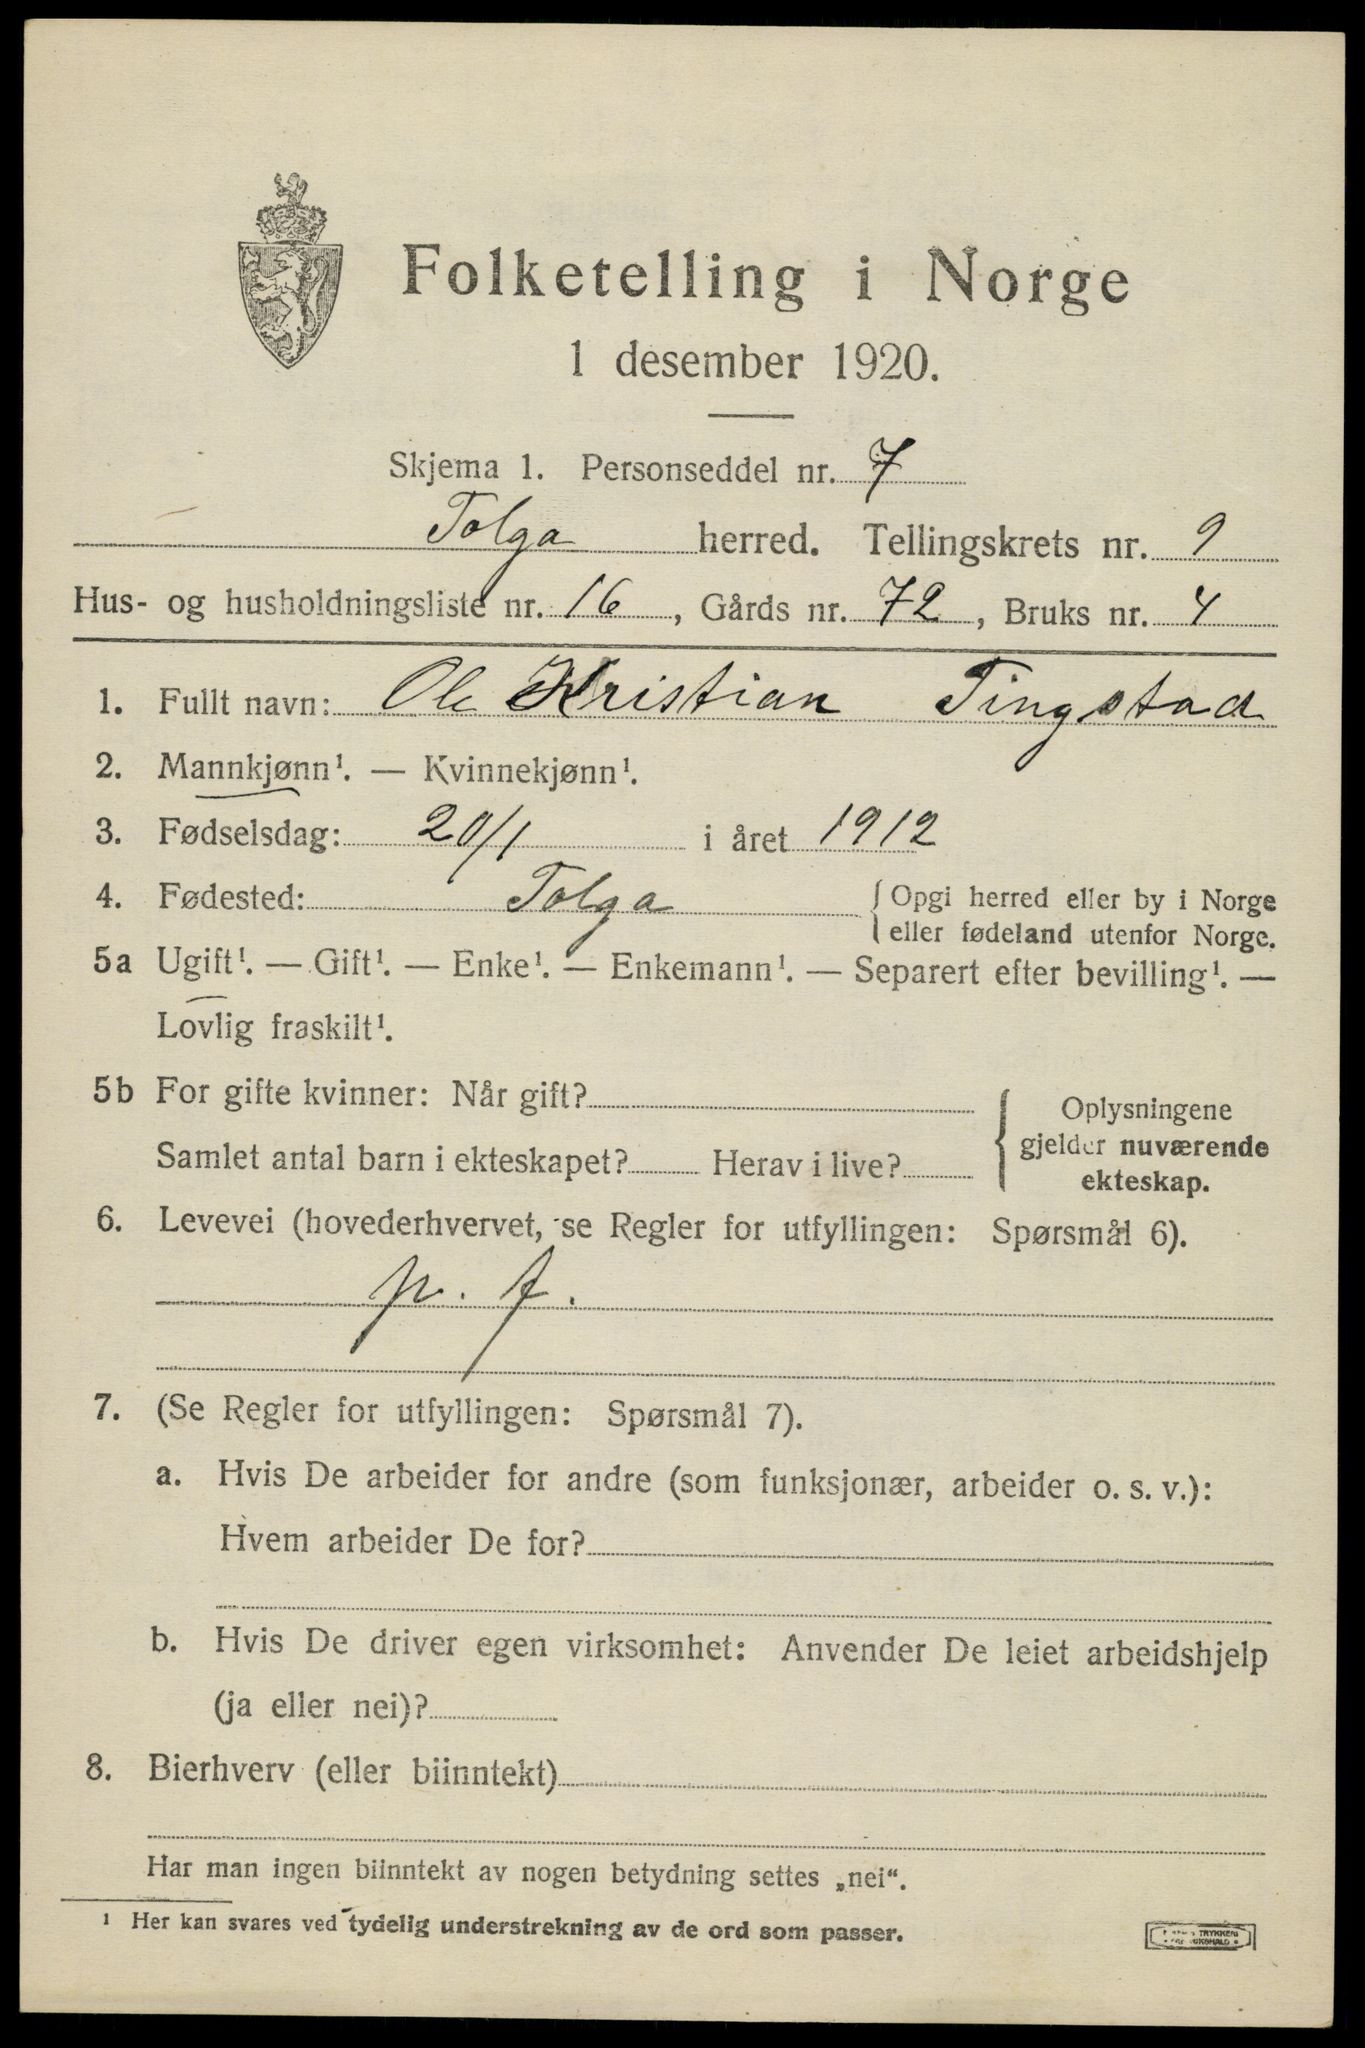 Folketelling i Norge
1 desember 1920.
Skjema 1. Personseddel nr. 7
Tolga herred. Tellingskrets nr. 9
Hus- og husholdningsliste nr. 16, Gårds nr. 72, Bruks nr. 4
1. Fullt navn: Ole Kristian Tingstad
2. Mannkjønn¹. — Kvinnekjønn¹.
3. Fødselsdag: 20/1 i året 1912
4. Fødested: Tolga { Opgi herred eller by i Norge
eller fødeland utenfor Norge.
5a Ugift¹. — Gift¹. — Enke¹. — Enkemann¹. — Separert efter bevilling¹. —
Lovlig fraskilt¹.
5b For gifte kvinner: Når gift?
Samlet antal barn i ekteskapet? Herav i live?
{ Oplysningene
gjelder nuværende
ekteskap.
6. Levevei (hovederhvervet, se Regler for utfyllingen: Spørsmål 6).
p. f.
7. (Se Regler for utfyllingen: Spørsmål 7).
a. Hvis De arbeider for andre (som funksjonær, arbeider o. s. v.):
Hvem arbeider De for?
b. Hvis De driver egen virksomhet: Anvender De leiet arbeidshjelp
(ja eller nei)?
8. Bierhverv (eller biinntekt)
Har man ingen biinntekt av nogen betydning settes „nei“.
¹ Her kan svares ved tydelig understrekning av de ord som passer.
TRYKKERI